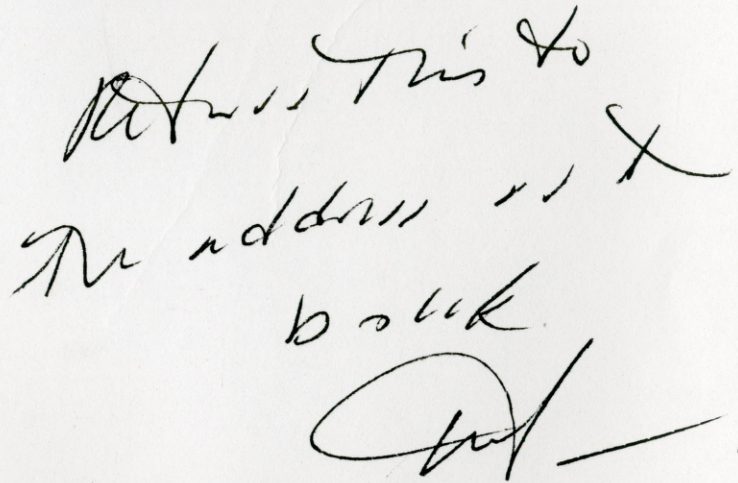 Return this to
The address in
book